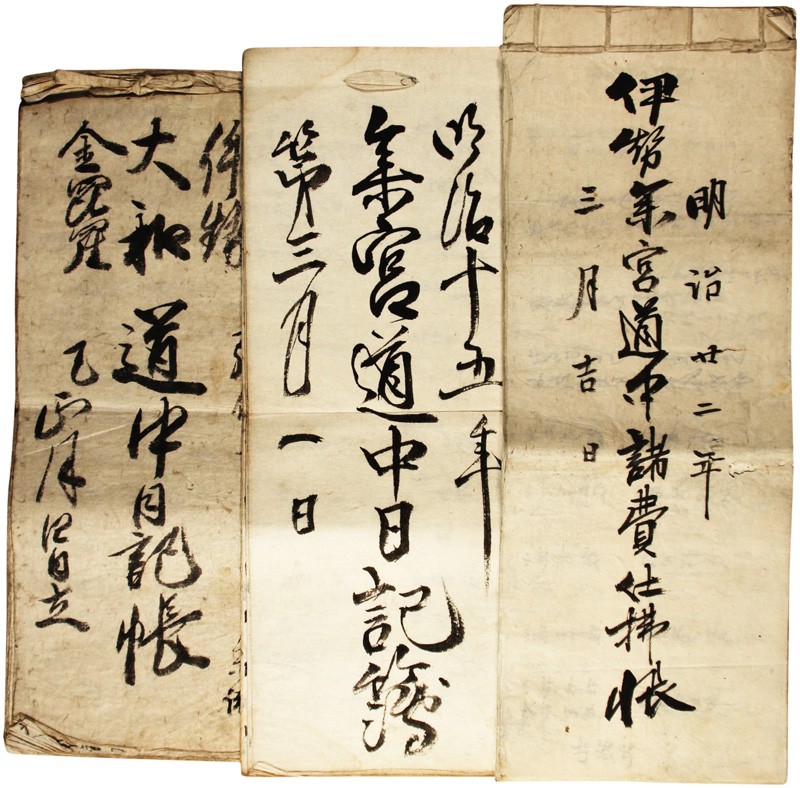 明治廿二年
伊勢参宮道中諸費仕拂帳
三月吉日
明治十五年
参宮道中日記簿
第三月一日
伊勢
大和道中日記帳
金毘羅
正月日立